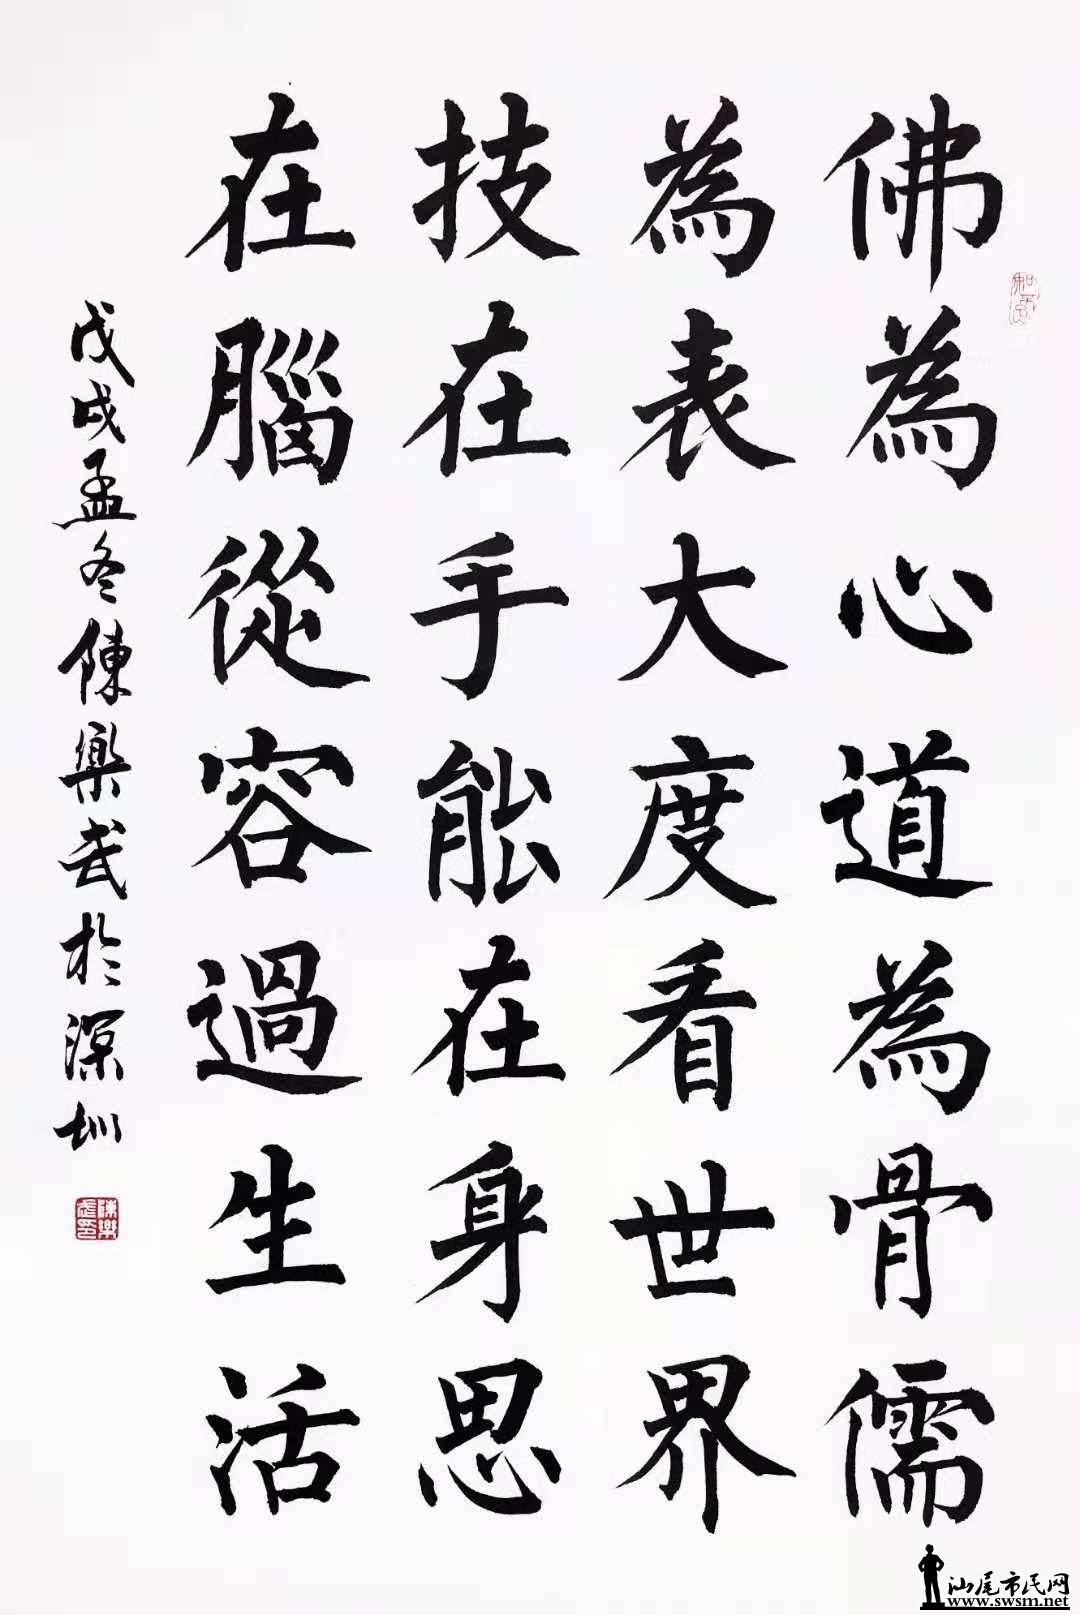 佛為心道為骨儒
為表大度看世界
技在手能在身思
在腦從容過生活
戊戌孟冬陳樂武於深圳
陳樂武印
汕尾市民网
www.swsm.net